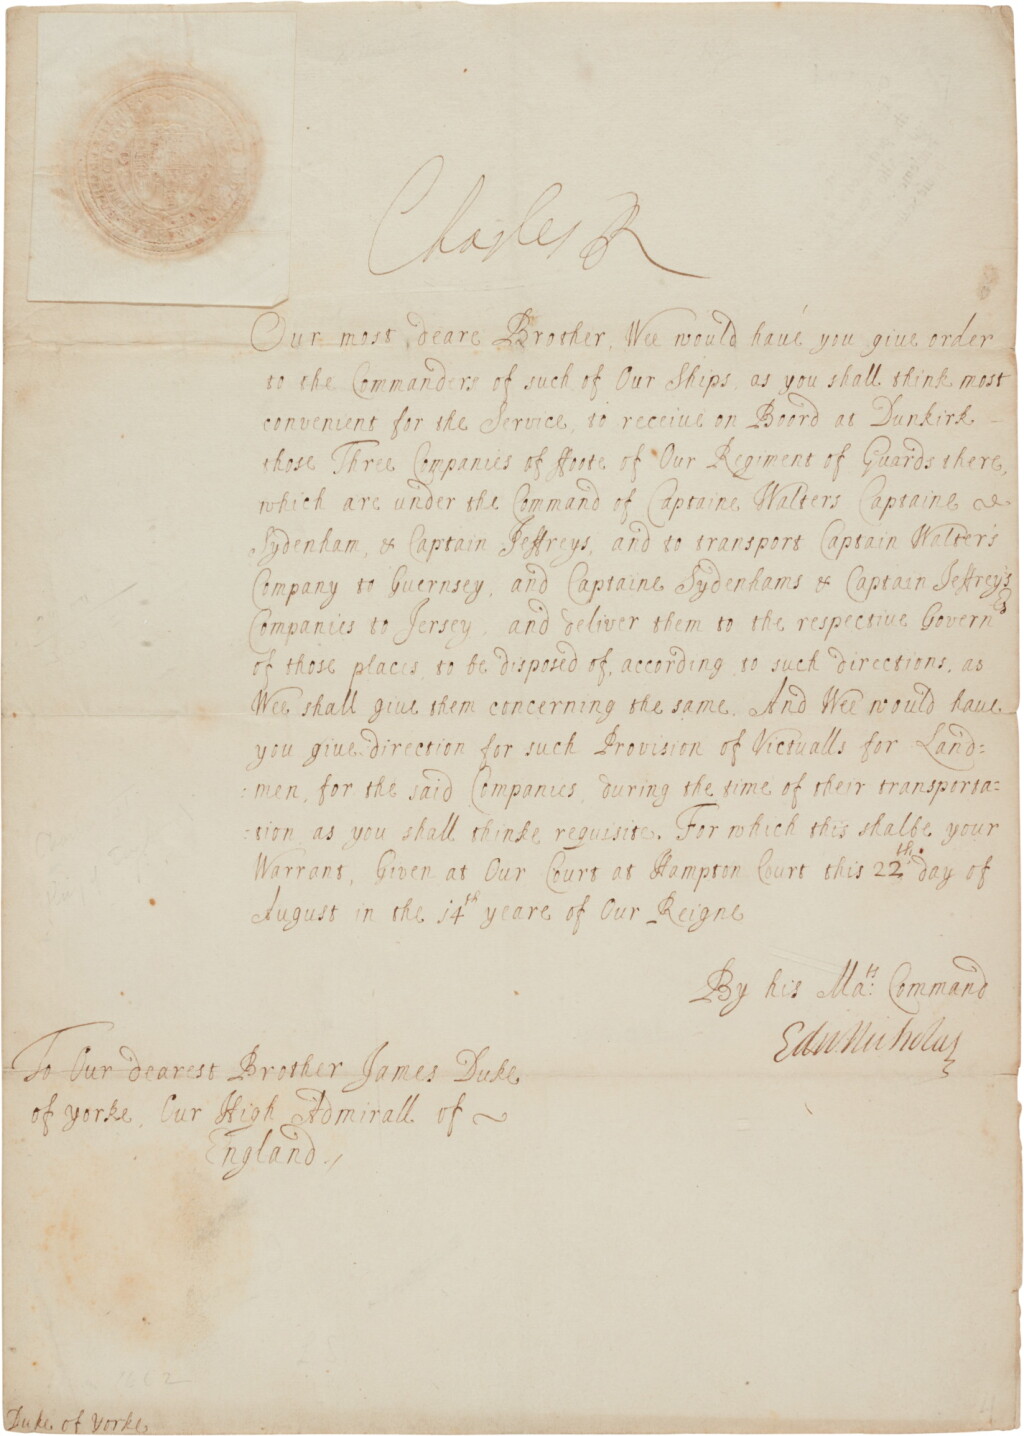 Charles R
Our most deare Brother, Wee would have you give order
to the Commanders of such of Our Ships, as you shall think most
convenient for the Service, to receive on Boord at Dunkirk –
those Three Companies of ffoote of Our Regiment of Guards there,
which are under the Command of Captaine Walters Captaine
Sydenham, & Captain Jeffreys, and to transport Captain Walters
Company to Guernsey, and Captaine Sydenhams & Captain Jeffreys
Companies to Jersey, and deliver them to the respective Governrs
of those places, to be disposed of, according to such directions, as
Wee shall give them concerning the same. And Wee would have
you give direction for such Provision of Victualls for Land=
=men, for the said Companies, during the time of their transporta=
=tion, as you shall thinke requisite. For which this shalbe your
Warrant, Given at Our Court at Hampton Court this 22th day of
August in the 14th yeare of Our Reigne
By his Mats: Command
Edw. Nicholas
To Our dearest Brother James Duke
of Yorke, Our High Admirall of ~
England.
1662
Duke of Yorke